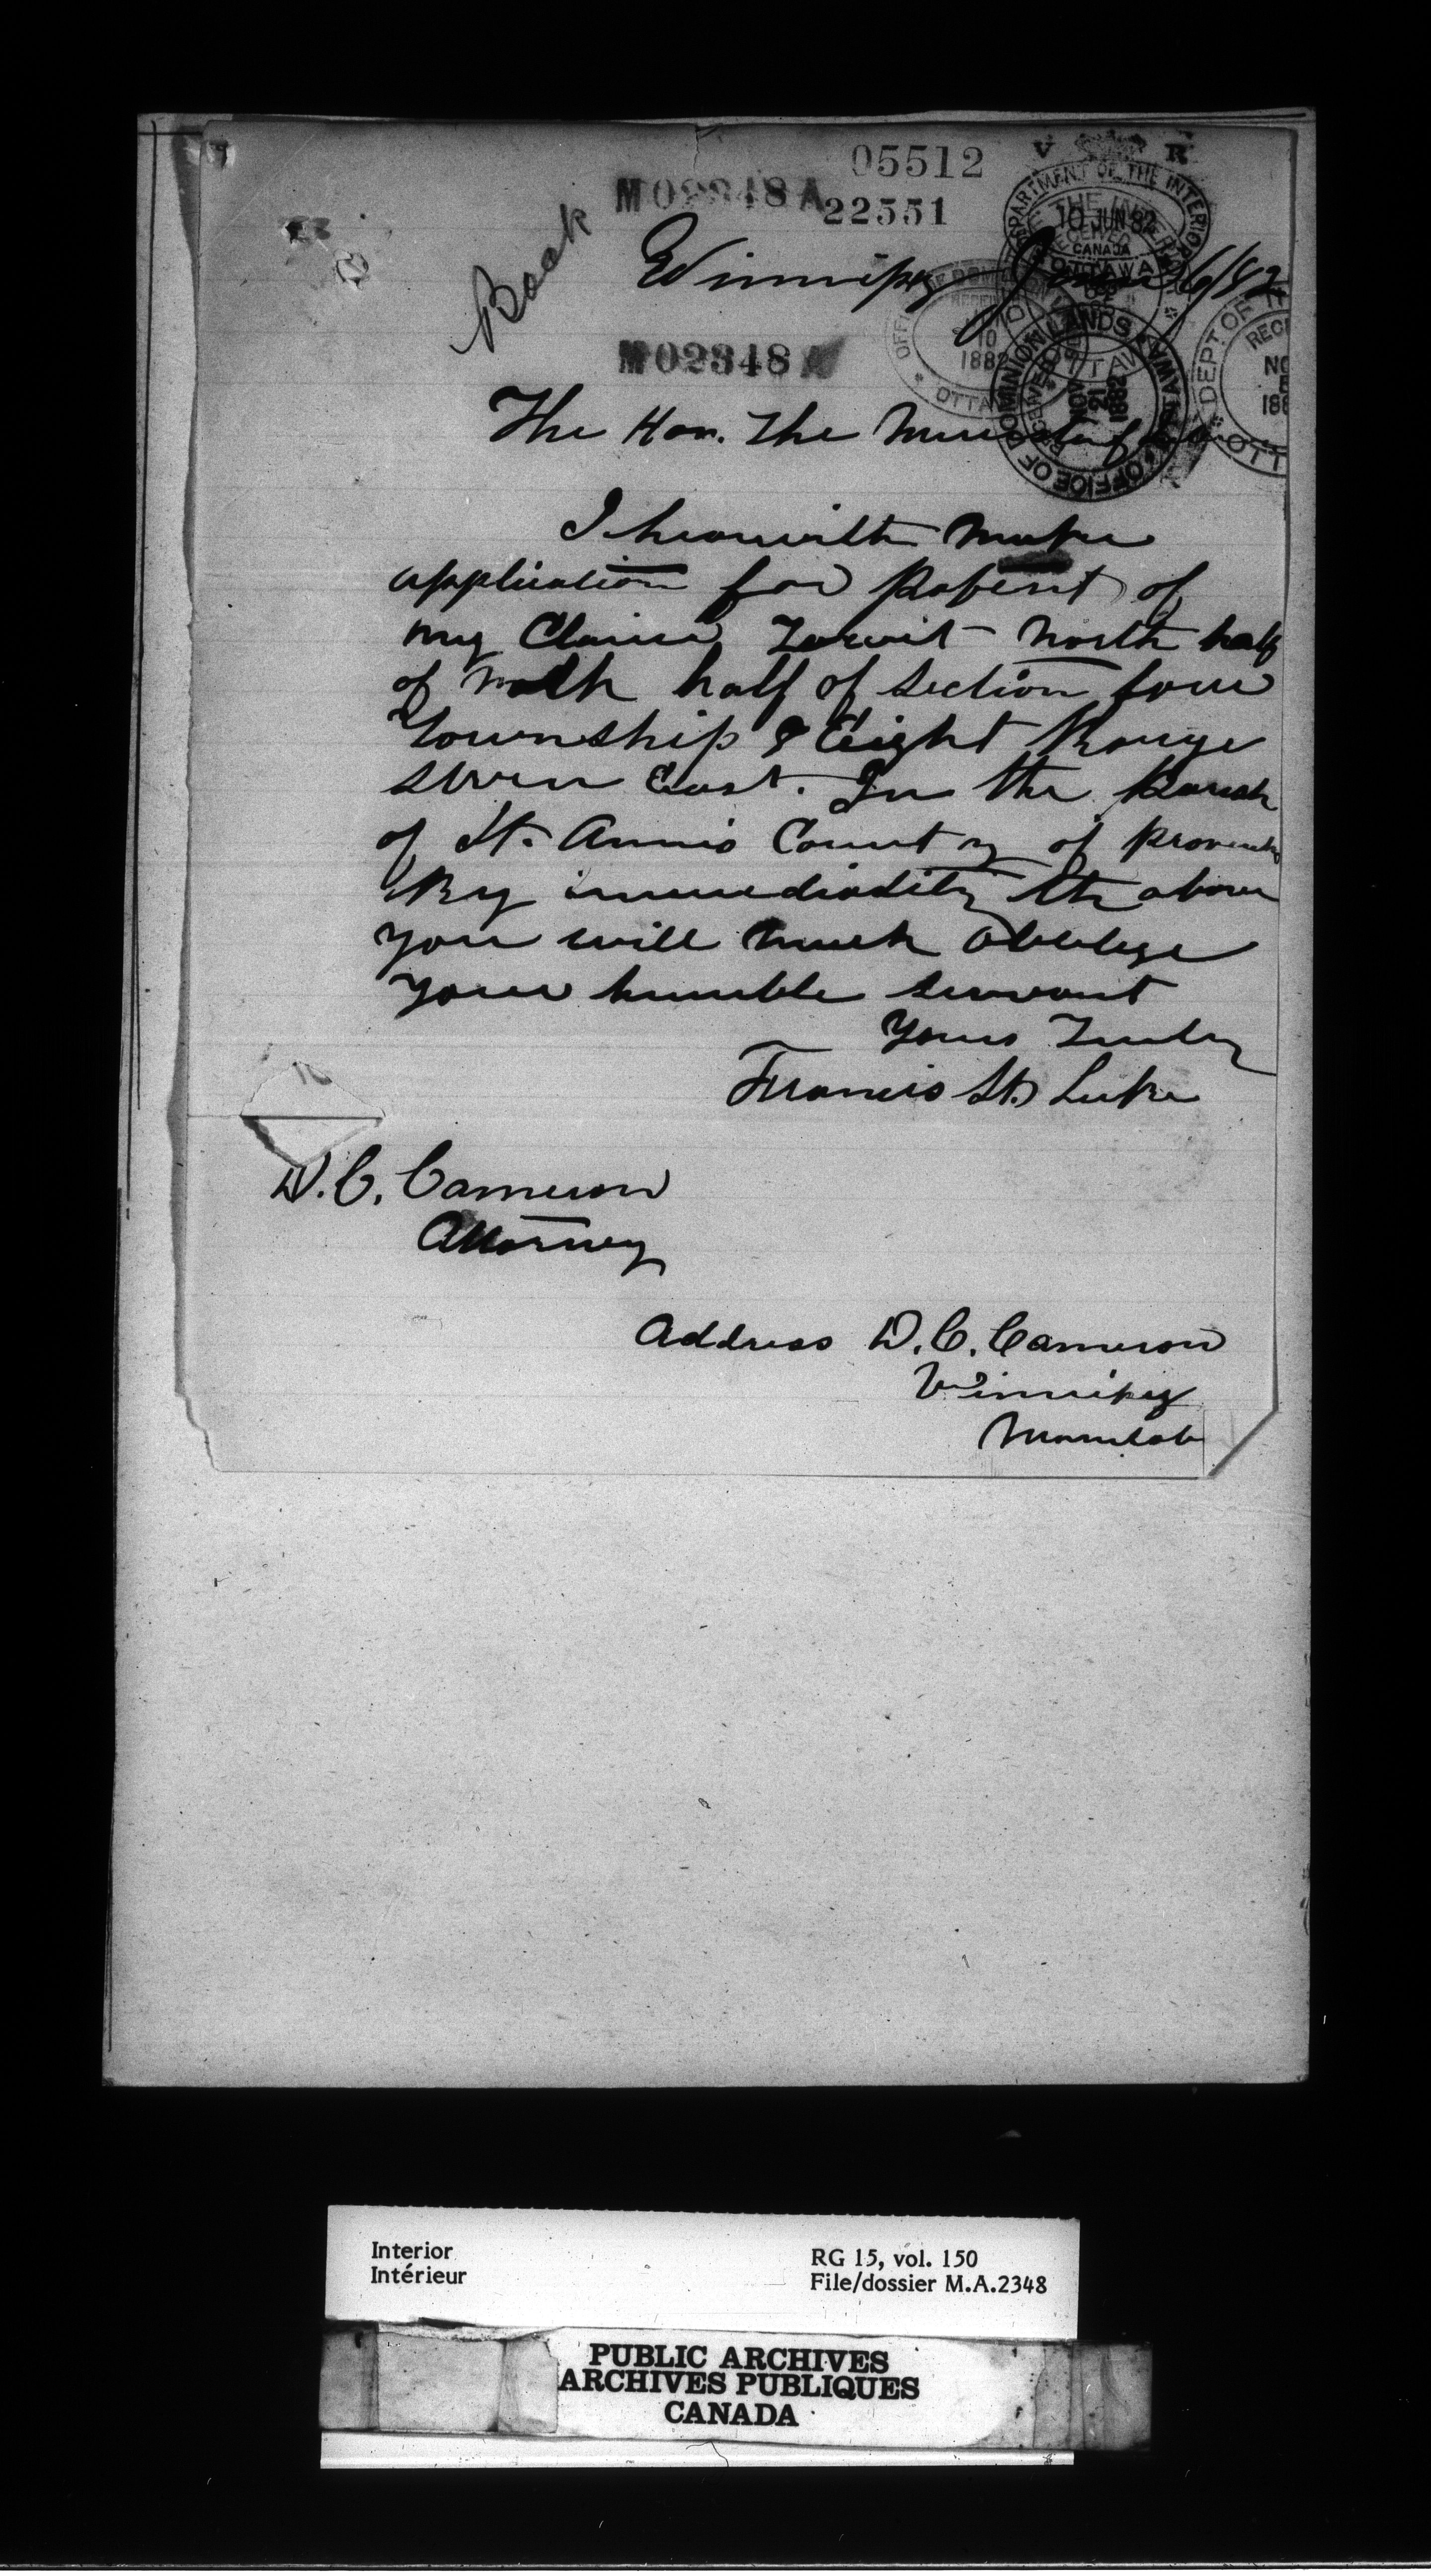 05512
M02348A
22551
V R
DEPARTMENT OF THE INTERIOR
10 JUN 82
CANADA
Book
Winnipeg June 6/82
RECEIVED
10
1882
OTTAWA
OFFICE OF DOMINION LANDS OTTAWA
RECEIVED
NOV
21
1882
DEPT OF
M02348A
The Hon. The Minister of
I hearwith make
application for Patent of
my Claim Towit North half
of North half of Section four
Township 8 Eight Range
seven East. In the Parish
of St. Anns County of Provencher
By immediatily the above
you will much Obblige
your humble servant
Yours Truly
Francis St. Luke
D. C. Cameron
Attorney
Address D. C. Cameron
Winnipeg
Manitob
Interior
Intérieur
RG 15, vol. 150
File/dossier M.A.2348
PUBLIC ARCHIVES
ARCHIVES PUBLIQUES
CANADA